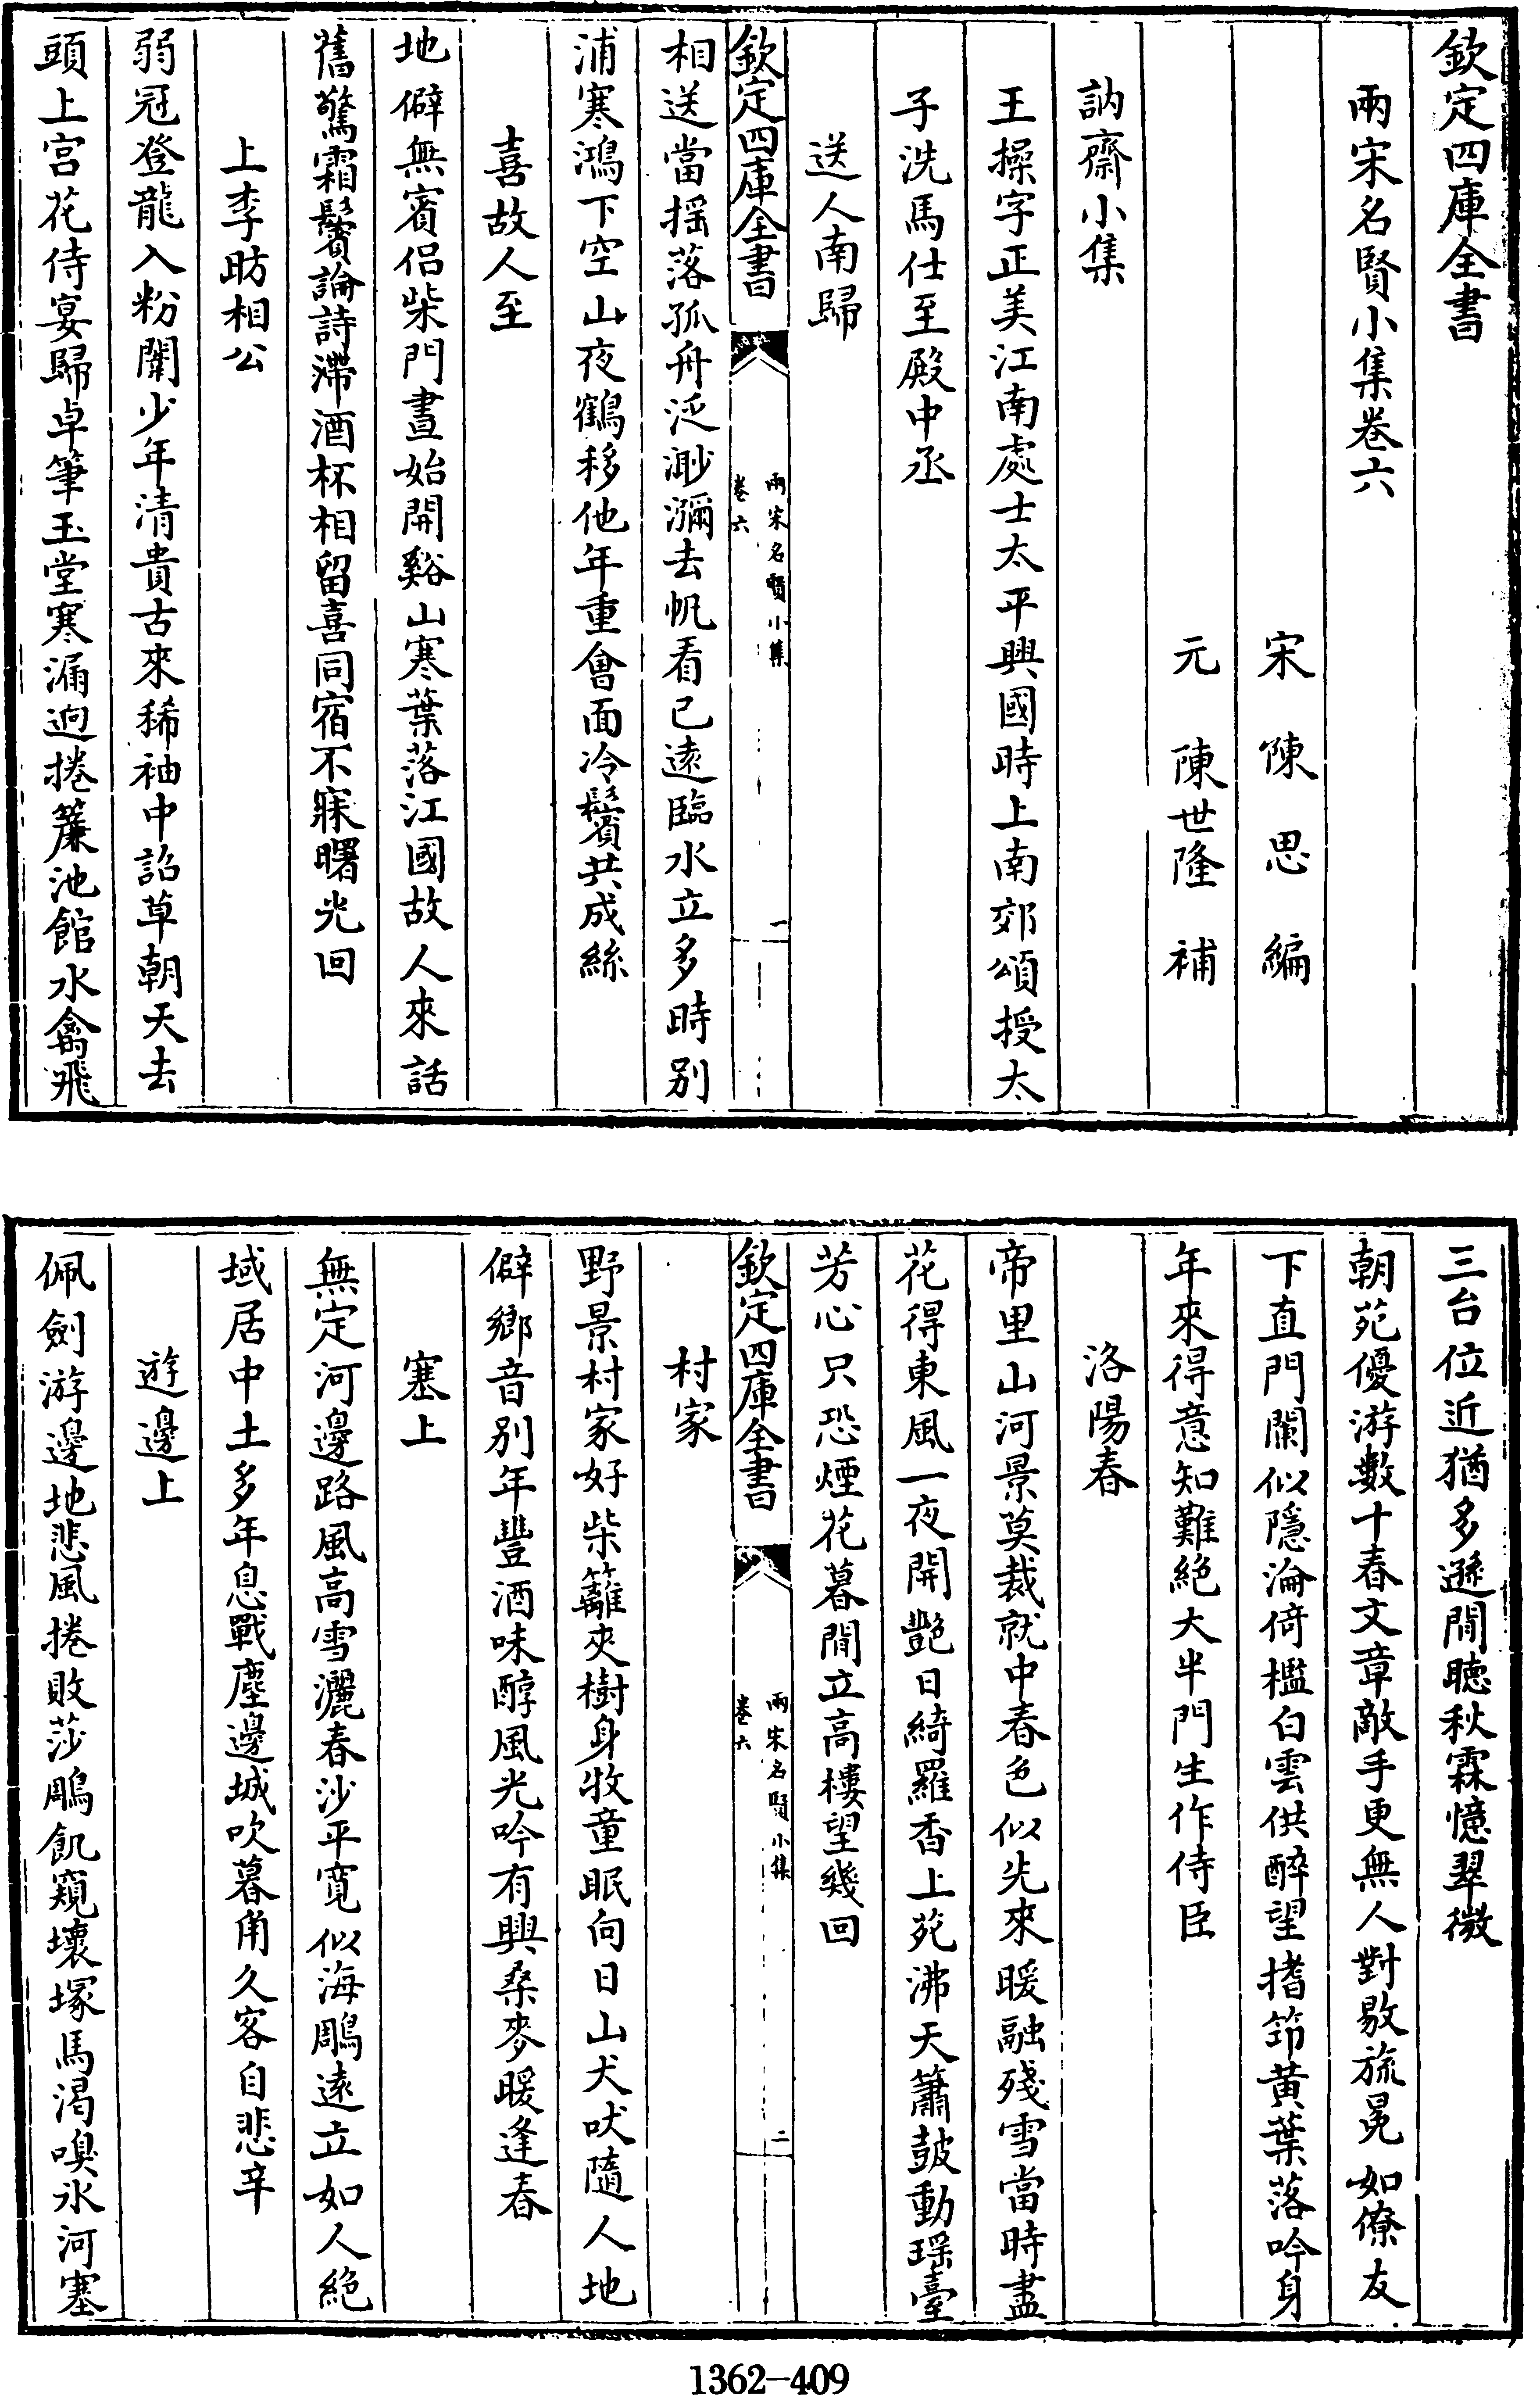 欽定四庫全書
兩宋名賢小集卷六
宋 陳思 編
元 陳世隆 補
訥齋小集
王操字正美江南處士太平興國時上南郊頌授太
子洗馬仕至殿中丞
送人南歸
欽定四庫全書
兩宋名賢小集
卷六
一
相送當揺落孤舟泛渺瀰去帆看已遠臨水立多時别
浦寒鴻下空山夜鶴移他年重會面冷鬢共成絲
喜故人至
地僻無賓侣柴門晝始開谿山寒葉落江國故人來話
舊驚霜鬢論詩滯酒杯相留喜同宿不寐曙光回
上李昉相公
弱冠登龍入粉闈少年清貴古來稀袖中詔草朝天去
頭上宫花侍宴歸卓筆玉堂寒漏迥捲簾池館水禽飛
三台位近猶多遜閒聴秋霖憶翠微
朝苑優游數十春文章敵手更無人對敭旒冕如僚友
下直門闌似隱淪倚檻白雲供醉望搘筇黄葉落吟身
年來得意知難絶大半門生作侍臣
洛陽春
帝里山河景莫裁就中春色似先來暖融殘雪當時盡
花得東風一夜開艷日綺羅香上苑沸天簫鼓動瑶臺
芳心只恐煙花暮閒立高樓望幾回
欽定四庫全書
兩宋名賢小集
卷六
二
村家
野景村家好柴籬夾樹身牧童眠向日山犬吠隨人地
僻鄉音别年豐酒味醇風光吟有興桑麥暖逢春
塞上
無定河邊路風高雪灑春沙平寛似海鵰遠立如人絶
域居中土多年息戰塵邊城吹暮角久客自悲辛
遊邊上
佩劍游邊地悲風捲敗莎鵰飢窺壞塚馬渴嗅冰河塞
1362-409